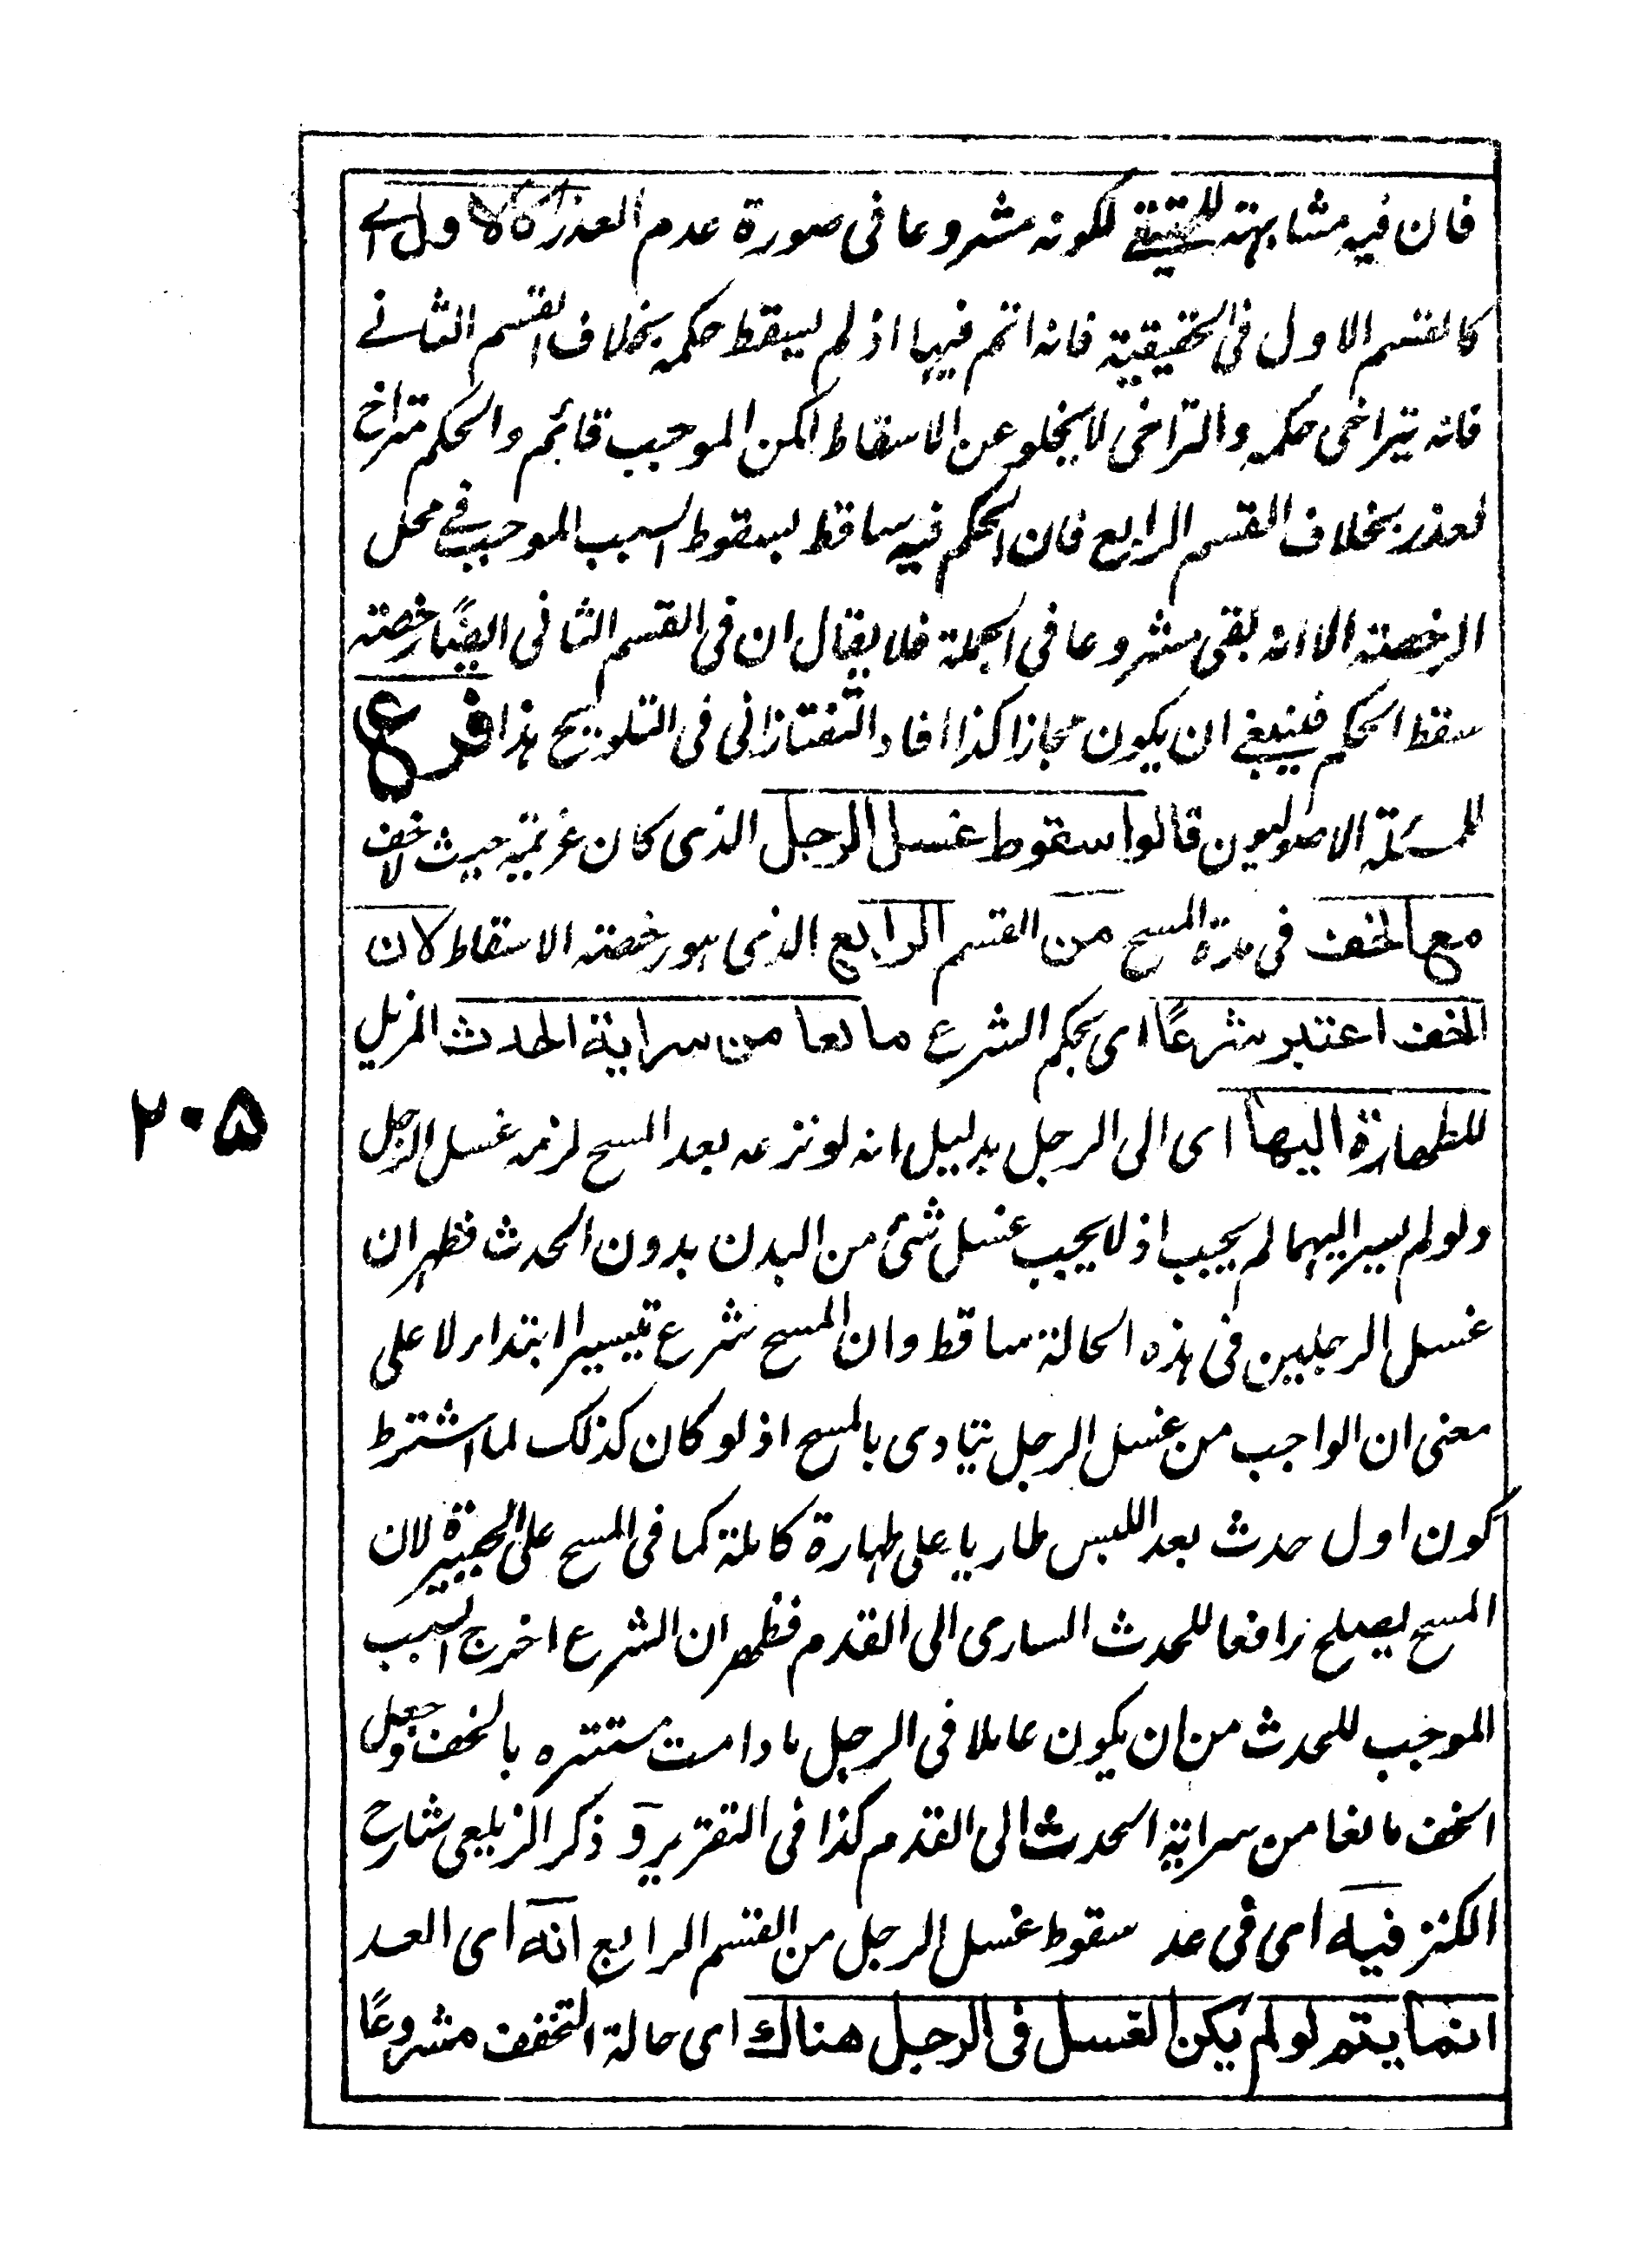 فان فيه مشابهة للحقيقي لكونه مشروعا فى صورة عدم العذر كالاول اے
كالقسم الاول فى الحقيقية فانه اتم فيها اذ لم يسقط حكمه بخلاف القسم الثانے
فانه يتراخى حكمه والتراخى لا يخلو عن الاسقاط لكن الموجب قائم والحكم متراخ
لعذر بخلاف القسم الرابع فان الحكم فيه ساقط بسقوط السبب الموجب فے محل
الرخصة الا انه بقى مشروعا فى الجملة فلا يقال ان فى القسم الثانى ايضًا رخصة
سقط الحكم فينبغے ان يكون مجازا كذا افاد التفتازانى فى التلويح هذا فرع
للمسئلة الاصوليون قالوا سقوط غسل الرجل الذى كان عزيمة حيث لا خف
مع الخف فى مدة المسح من القسم الرابع الذى هو رخصة الاسقاط لان
الخف اعتبر شرعًا اى بحكم الشرع مانعا من سراية الحدث المزيل
للطهارة اليها اى الى الرجل بدليل انه لو نزعه بعد المسح لزمه غسل الرجل
ولو لم يسر اليهما لم يجب اذ لا يجب غسل شئ من البدن بدون الحدث فظهر ان
غسل الرجلين فى هذه الحالة ساقط وان المسح شرع تيسيرا ابتداء لا على
معنى ان الواجب من غسل الرجل يتادى بالمسح اذ لو كان كذلك لما اشترط
كون اول حدث بعد اللبس طاريا على طهارة كاملة كما فى المسح على الجبيرة لان
المسح يصلح رافعا للحدث السارى الى القدم فظهر ان الشرع اخرج السبب
الموجب للحدث من ان يكون عاملا فى الرجل ما دامت مستترة بالخف وجعل
الخف مانعا من سراية الحدث الى القدم كذا فى التقرير و ذكر الزيلعى شارح
الكنز فيه اى فى عد سقوط غسل الرجل من القسم الرابع انه اى العد
انما يتم لو لم يكن الغسل فى الرجل هناك اى حالة التخفف مشروعًا
۲۰۵